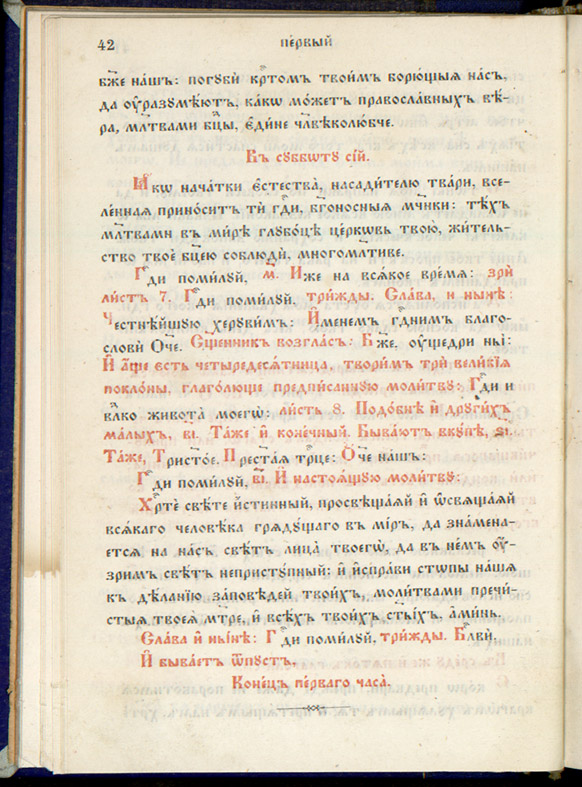 42 пе́рвый
бж҃е на́шъ: погꙋбѝ крⷭ҇томъ твои́мъ борю́щыѧ на́съ,
да ᲂу҆разꙋмѣ́ютъ, ка́кѡ мо́жетъ правосла́вныхъ вѣ́-
ра, млт҃вами бцⷣы, є҆ди́не чл҃вѣколю́бче.
Въ сꙋббѡ́тꙋ сі́й.
Ꙗ҆́кѡ нача́тки є҆стества̀, насади́телю тва́ри, все-
ле́ннаѧ прино́ситъ тѝ гдⷭ҇и, бг҃оно́сныѧ мч҃нки: тѣ́хъ
млт҃вами въ ми́рѣ глꙋбо́цѣ це́рковь твою̀, жи́тель-
ство твоѐ бцⷣею соблюдѝ, многомлⷭ҇тиве.
Гдⷭ҇и поми́лꙋй, м҃. И҆́же на всѧ́кое вре́мѧ: зрѝ
ли́стъ 7. Гдⷭ҇и поми́лꙋй, три́жды. Сла́ва, и҆ ны́нѣ:
Честнѣ́йшꙋю херꙋві̑мъ: И҆́менемъ гдⷭ҇нимъ благо-
словѝ О҆́ч҃е. Сщ҃е́нникъ возгла́съ: Бж҃е, ᲂу҆ще́дри ны̀:
И҆ а҆́ще є҆́сть четыредесѧ́тница, твори́мъ трѝ вели̑кїѧ
покло́ны, глаго́люще предпи́саннꙋю моли́твꙋ: Гдⷭ҇и и҆
влⷣко живота̀ моегѡ̀: ли́стъ 8. Подо́бнѣ и҆ дрꙋги́хъ
ма́лыхъ, в҃і. Та́же и҆ коне́чный. Быва́ютъ вкꙋ́пѣ, ѕ҃і.
Та́же, Трист҃о́е. Прест҃а́ѧ трⷪ҇це: О҆́ч҃е на́шъ:
Гдⷭ҇и поми́лꙋй, в҃і. И҆ настоѧ́щꙋю моли́твꙋ:
Хрⷭ҇тѐ свѣ́те и҆́стинный, просвѣща́ѧй и҆ ѡ҆свѧща́ѧй
всѧ́каго человѣ́ка грѧдꙋ́щаго въ мі́ръ, да зна́мена-
етсѧ на на́съ свѣ́тъ лица̀ твоегѡ̀, да въ не́мъ ᲂу҆́-
зримъ свѣ́тъ непристꙋ́пный: и҆ и҆спра́ви стѡпы̀ на́шѧ
къ дѣ́ланїю за́повѣдей твои́хъ, моли́твами пречи́-
стыѧ твоеѧ̀ мт҃ре, и҆ всѣ́хъ твои́хъ ст҃ы́хъ, а҆ми́нь.
Сла́ва и҆ ны́нѣ: Гдⷭ҇и поми́лꙋй, три́жды. Бл҃вѝ.
И҆ быва́етъ ѿпꙋ́стъ.
Коне́цъ пе́рваго часа̀.